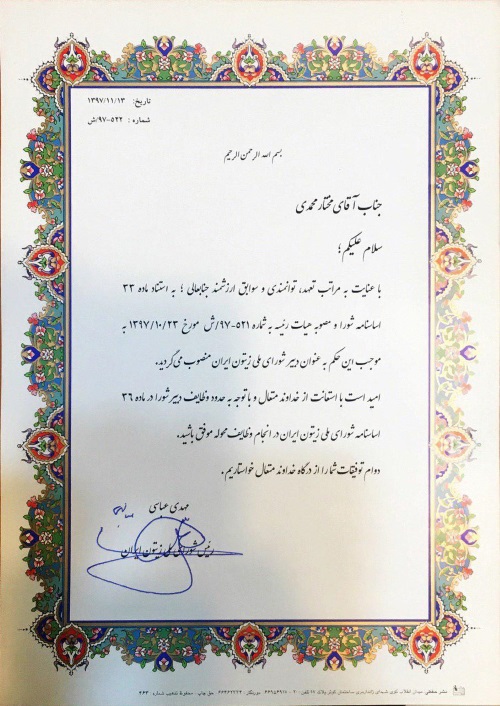 تاریخ: ۱۳۹۷/۱۱/۱۳
شماره: ۵۲۲-۹۷/ش
بسم الله الرحمن الرحیم
جناب آقای مختار محمدی
سلام علیکم؛
با عنایت به مراتب تعهد، توانمندی و سوابق ارزشمند جنابعالی؛ به استناد ماده ۳۳
اساسنامه شورا و مصوبه هیات رئیسه به شماره ۵۲۱-۹۷/ش مورخ ۱۳۹۷/۱۰/۲۳ به
موجب این حکم به عنوان دبیر شورای ملی زیتون ایران منصوب می‌گردید.
امید است با استعانت از خداوند متعال و با توجه به حدود وظایف دبیر شورا در ماده ۳۶
اساسنامه شورای ملی زیتون ایران در انجام وظایف محوله موفق باشید.
دوام توفیقات شما را از درگاه خداوند متعال خواستاریم.
مهدی عباسی
رئیس شورای ملی زیتون ایران